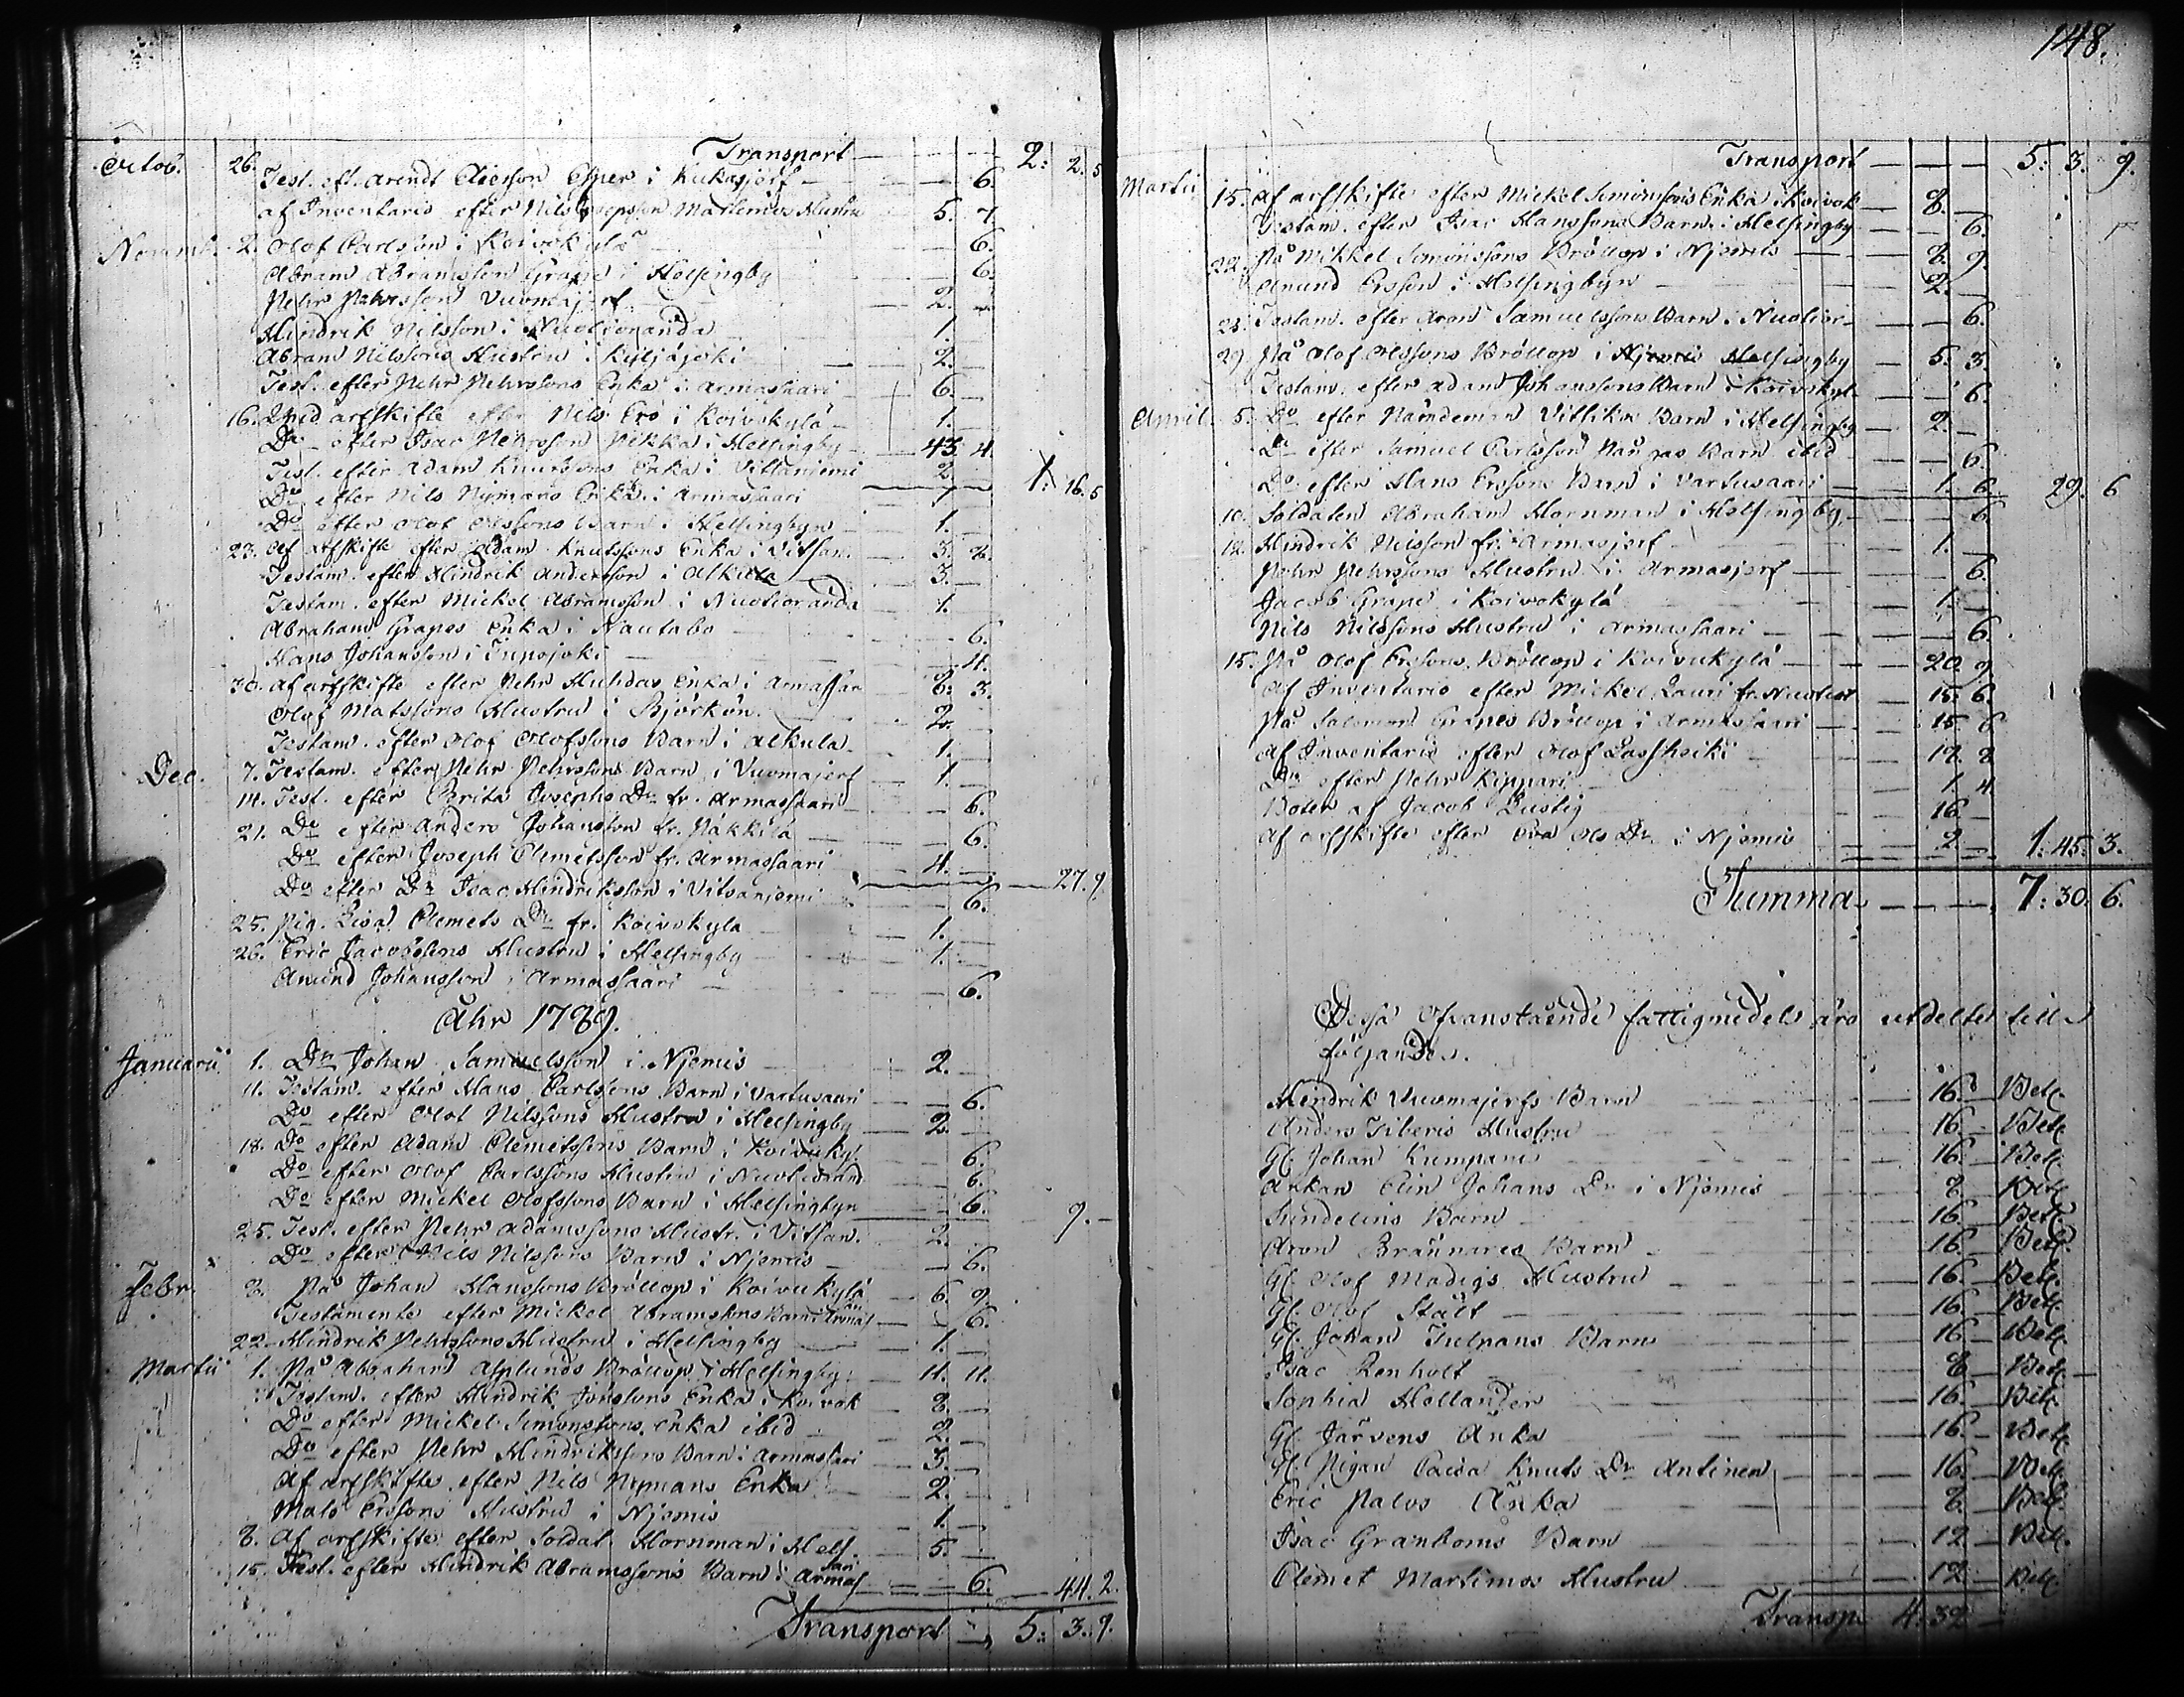 148.
Transport — 2: 2. 5
Octob. 26. Test. eft. Arendt Ersson i Kukasjerf — 6.
af Inventario efter Nils Josepsson Hustru — 5. 7.
Novemb. 2. Olof Carlsson i Koivokylä — 6.
Abram Abramsson Grape i Helsingby — 6.
Pehr Pehrsson Vuomajerf — 2. —
Hindrik Nilsson i Nuotioranda — 1.
Abram Nilssons Hustru i — 2. —
Test. efter Pehr Pehrssons Enka i Armassaari — 6. —
16. Vid arfskifte efter Nils Erö i Koivokylä — 1. —
Do efter Isac Pehrsson Nikka i Helsingby — 43. 4.
Test. efter Adam Knutssons Enka i Vittaniemi — 2
Do efter Nils Nymans Enka i Armassaari — 1. — 1: 16. 5
Do efter Olof Olssons Barn i Helsingbyn — 1.
23. Af arfskifte efter Adam Knutssons Enka i Vitsan. — 3. 2.
Testam. efter Hindrik Andersson i Alkula — 3. —
Testam. efter Mickel Abramsson i Nuotioranda — 1.
Abrahams Grapes Enka i Nautabo — 6.
Hans Johansson i — 4.
30. Af arfskifte efter Pehr Huhdas Enka i Armassar — 6. 3.
Olof Matssons Hustru i Björkön. — 2.
Testam. efter Olof Olofssons Barn i Alkula — 1.
Dec. 7. Testam. efter Pehr Pehrssons Barn i Vuomajerf — 1. —
14. Test. efter Brita Josephs Dr fr. Armassaari — 6.
21. Do efter Anders Johansson fr. Näkkilä — 6.
Do efter Joseph Clemetsson fr. Armassaari — 4. — 27. 9
Do efter Dr Isac Hindriksson i Vitsanjemi — 6.
25. Pig. Lisa Clemets Dr fr. Koivokyla — 1.
26. Eric Jacobssons Hustru i Helsingby — 1. —
Anund Johansson i Armassaari — 6.
Åhr 1789.
Januarii 1. Dr Johan Samuelsson i Njemis — 2.
11. Testam. efter Hans Carlssons Barn i Vartusaari — 6.
Do efter Olof Nilssons Hustru i Helsingby — 2. —
18. Do efter Adam Clemetssons Barn i Koivuky. — 6.
Do efter Olof Carlssons Hustru i Nuotiorand — 6.
Do efter Mickel Olofssons Barn i Helsingbyn — 6. — 9. —
25. Test. efter Pehr Adamssons Hustr. i Vitsan. — 2. —
Do efter Nils Nilssons Barn i Njemis — 6.
Febr. 2. På Johan Hanssons Bröllop i Koivukylä — 6. 9.
Testamente efter Mickel Abramssons Barn i Armas — 6.
22. Hindrik Pehrssons Hustru i Helsingby — 1. —
Martii 1. På Abraham Asplunds Bröllop i Helsingby — 11. 11.
Testam. efter Hindrik Jönssons Enka i Koivok — 8. —
Do efter Mickel Simonssons Enka ibid — 2. —
Do efter Pehr Hindrikssons Barn i Armassari — 3. —
Af arfskifte efter Nils Nymans Enka — 2. —
Mats Erssons Hustru i Njemis — 1. —
8. Af arfskifte efter Soldat. Hornman i Hels. — 5. —
15. Test. efter Hindrik Abramssons Barn i Armassari — 6. — 44. 2.
Transport — 5: 3. 9.
Transport — 5: 3. 9.
Martii 15. Af arfskifte efter Mickel Simonssons Enka i Koivok — 8. —
Testam. efter Isac Hanssons Barn i Helsingby — 6.
22. På Mikkel Simonssons Bröllop i Njemis — 8. 9.
Anund Ersson i Helsingbyn — 2. —
25. Testam. efter Aron Samuelssons Barn i Nuotior — 6.
29. På Olof Olssons Bröllop i Njemis Helsingby — 5. 3.
Testam. efter Adam Johanssons Barn i Koivukyl — 6.
April. 5. Do efter Nämdeman Vittikko Barn i Helsingby — 2. —
Do efter Samuel Carlsson Barn ibid — 6.
Do efter Hans Erssons Barn i Vartusaari — 1. 6. 29. 6
10. Soldaten Abraham Hornman i Helsingby. — 6.
12. Hindrik Nilsson fr. Armasjerf — 1. —
Pehr Pehrssons Hustru i Armasjerf — 6.
Jacob Grape i Koivokylä — 1. —
Nils Nilssons Hustru i Armassaari — 6.
15. På Olof Erssons Bröllop i Koivukylä — 20. 9.
Af Inventario efter Mickel Lauri fr. Nuotior — 15. 6.
På Salomon Grapes Bröllop i Armassaari — 15. 6
Af Inventario efter Olof Lassheiki — 12. 8
Do efter Pehr Kippari — 1. 4.
Böter af Jacob Lustig — 16. —
Af arfskifte efter Eva Ols Dr i Njemis — 2. — 1: 45. 3.
Summa — 7: 30. 6.
Dessa ofvanstående fattigmedel äro utdelte till
följande.
Hindrik Vuomajerfs Barn — 16. — Bet.
Anders Tiberis Hustru — 16. — Bet.
Gl. Johan Kumpane — 16. — Bet.
Änkan Elin Johans Dr i Njemis — 8. — Bet.
Sundelins Barn — 16. — Bet.
Aron Brännares Barn — 16. — Bet.
Gl. Olof Madigs Hustru — 16. — Bet.
Gl. Olof Stält — 16. — Bet.
Gl. Johan Tulpans Barn — 16. — Bet.
Isac Renholt — 8 — Bet.
Sophia Hellander — 16. — Bet.
Gl. Järvens Änka — 16. — Bet.
Gl. Pigan Caisa Knuts Dr Antinen — 16. — Bet.
Eric Palos Änka — 8. — Bet.
Isac Granboms Barn — 12 — Bet.
Clemet Martimos Hustru — 12 — Bet.
Transp. 4: 32 —